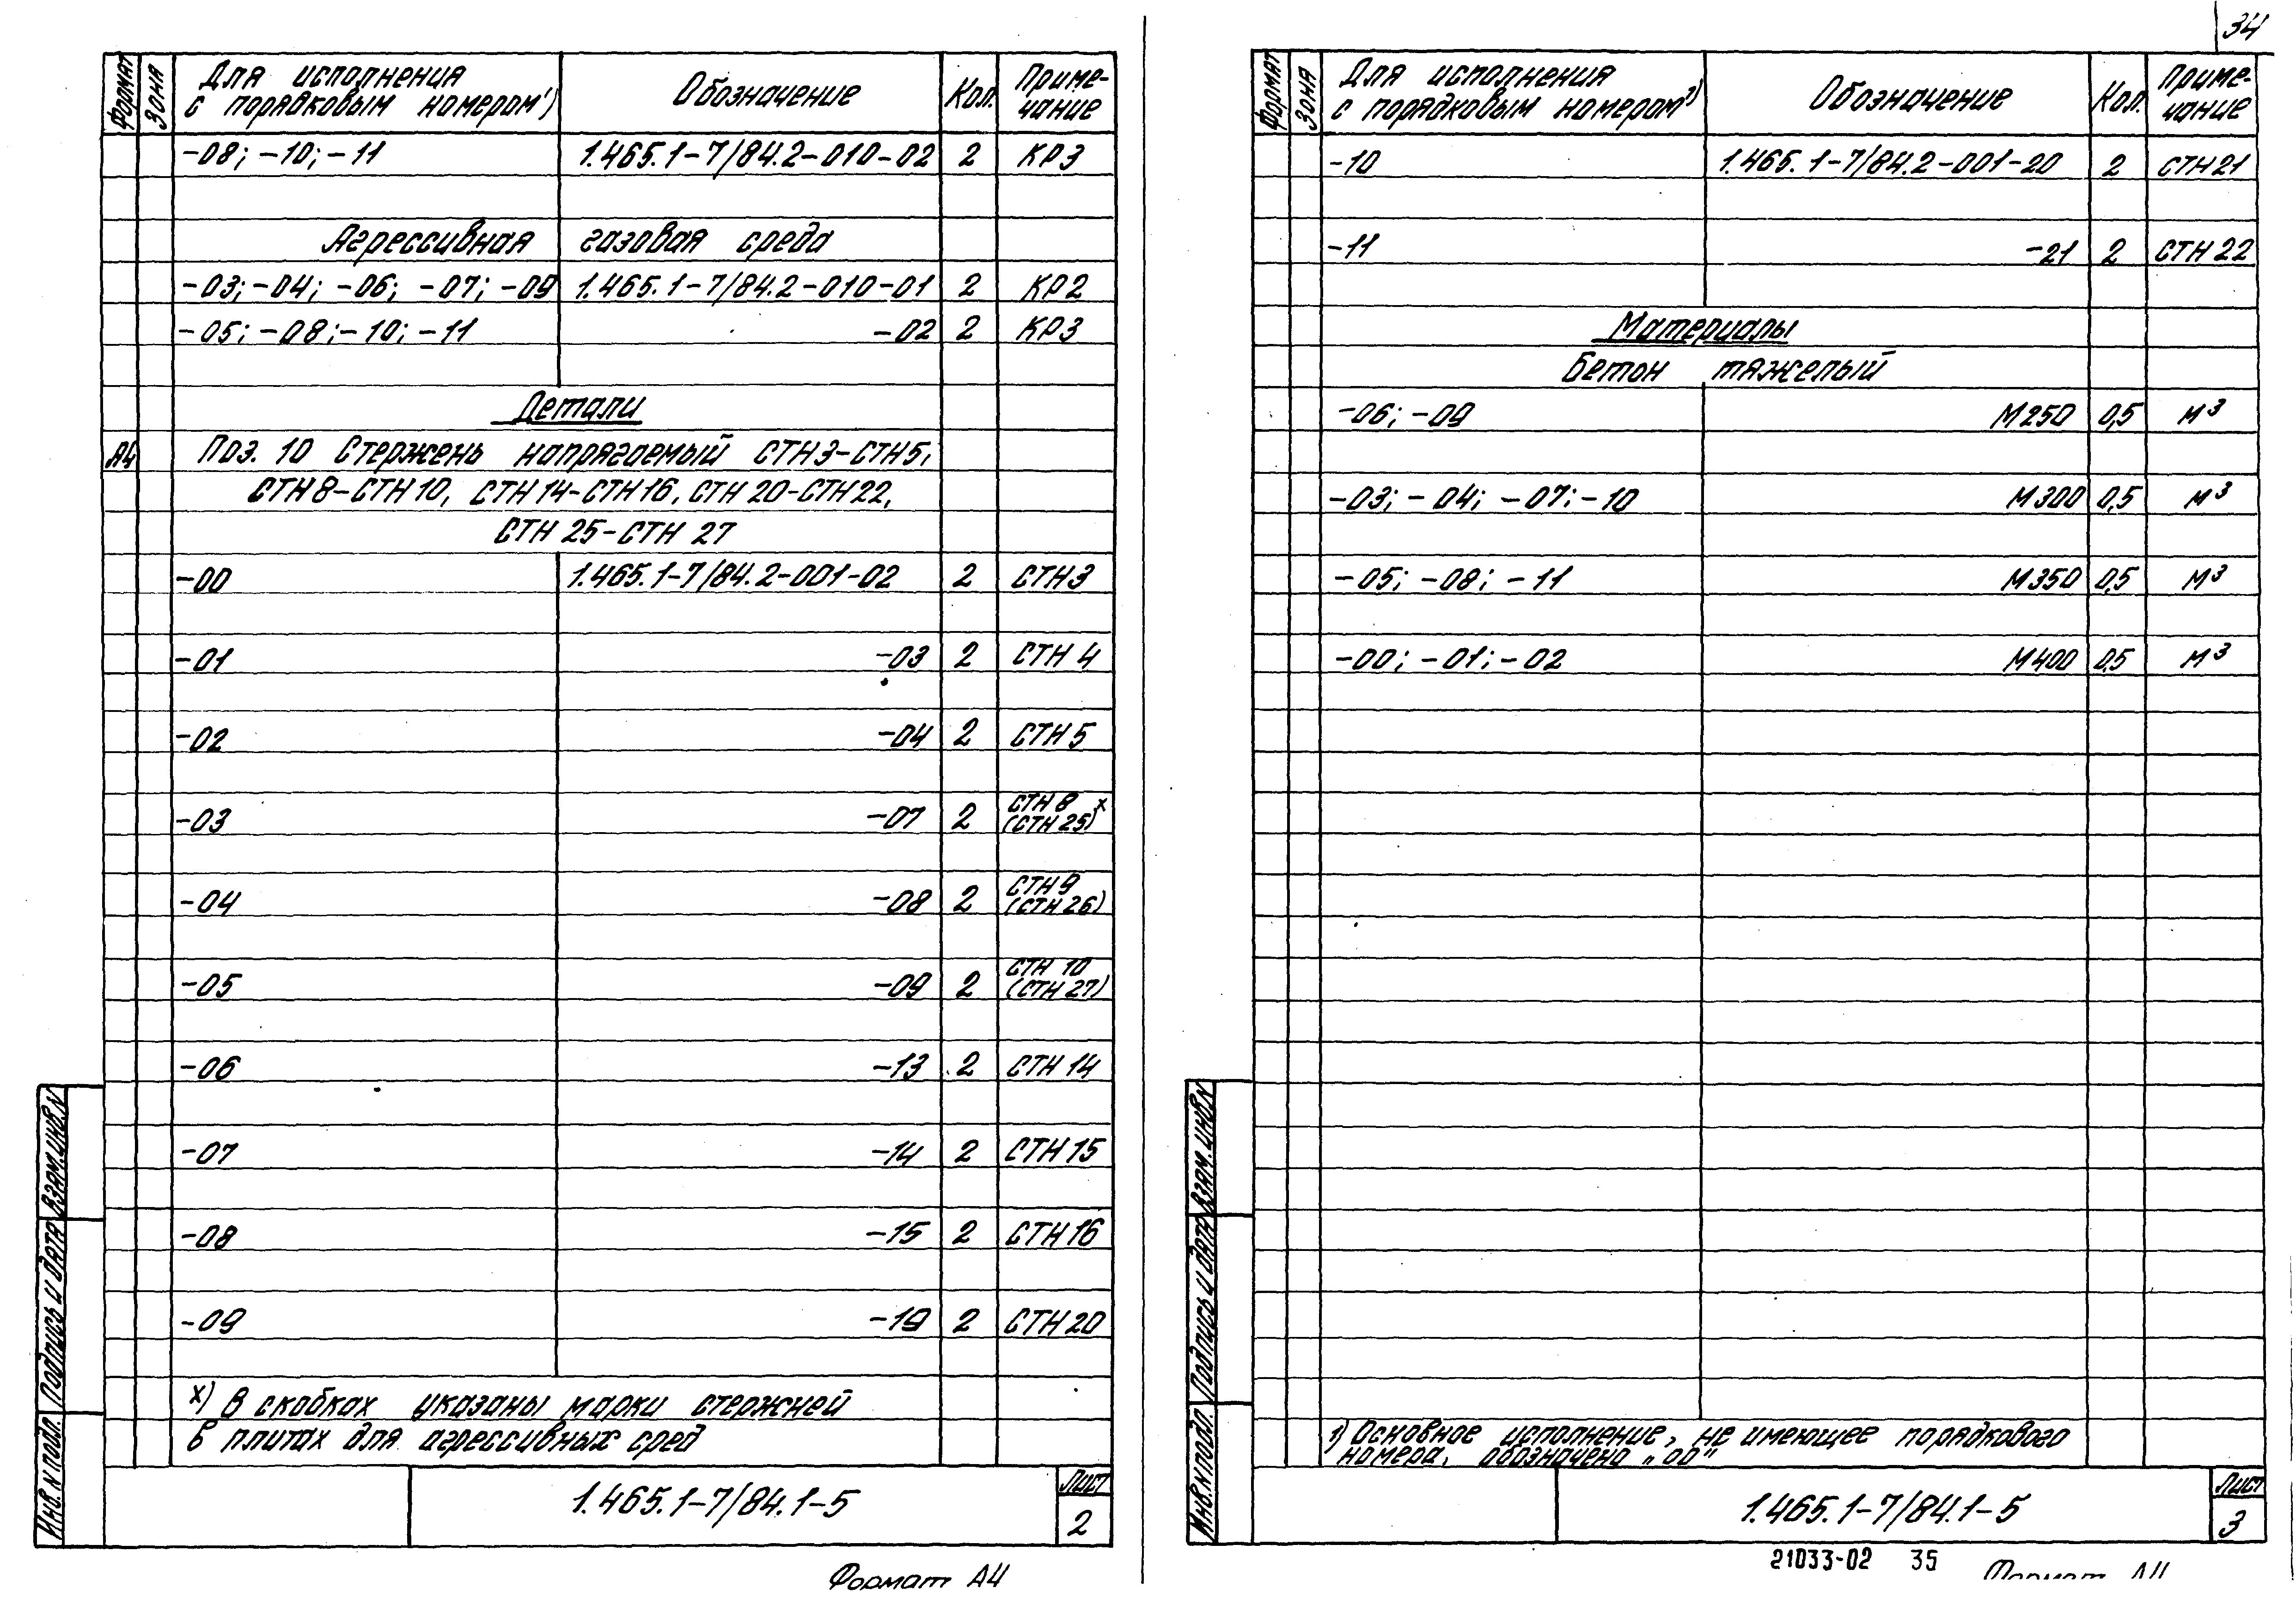 ФОРМАТ
ЗОНА
Для исполнения
с порядковым номером¹)
Обозначение
Кол.
Приме-
чание
-08; -10; -11 1.465.1-7/84.2-010-02 2 КР3
Агрессивная газовая среда
-03; -04; -06; -07; -09 1.465.1-7/84.2-010-01 2 КР2
-05; -08; -10; -11 -02 2 КР3
Детали
А4 Поз. 10 Стержень напрягаемый СТН3-СТН5,
СТН8-СТН10, СТН14-СТН16, СТН20-СТН22,
СТН 25-СТН 27
-00 1.465.1-7/84.2-001-02 2 СТН3
-01 -03 2 СТН 4
-02 -04 2 СТН 5
-03 -07 2 СТН 8 (СТН 25)ˣ
-04 -08 2 СТН 9 (СТН 26)
-05 -09 2 СТН 10 (СТН 27)
-06 -13 2 СТН 14
-07 -14 2 СТН 15
-08 -15 2 СТН 16
-09 -19 2 СТН 20
х) В скобках указаны марки стержней
в плитах для агрессивных сред
Инв. N подл. Подпись и дата Взам. инв. N
1.465.1-7/84.1-5
Лист
2
Формат А4
34
ФОРМАТ
ЗОНА
Для исполнения
с порядковым номером¹)
Обозначение
Кол.
Приме-
чание
-10 1.465.1-7/84.2-001-20 2 СТН21
-11 -21 2 СТН 22
Материалы
Бетон тяжелый
-06; -09 М250 0,5 м³
-03; -04; -07; -10 М300 0,5 м³
-05; -08; -11 М350 0,5 м³
-00; -01; -02 М400 0,5 м³
1) Основное исполнение, не имеющее порядкового
номера, обозначено „00"
Инв. N подл. Подпись и дата Взам. инв. N
1.465.1-7/84.1-5
Лист
3
21033-02 35
Формат А4